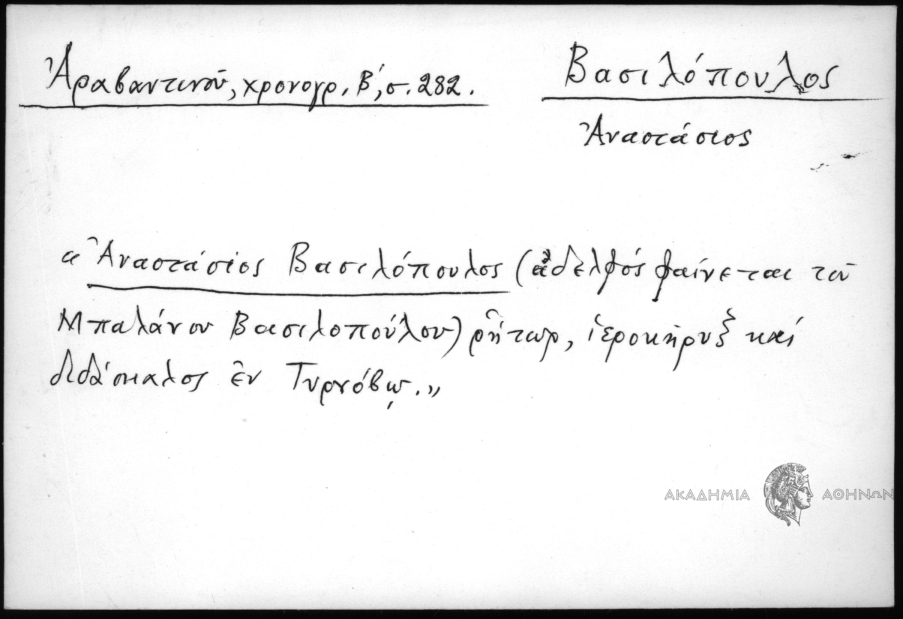 Ἀραβαντινοῦ, χρονογρ. Β΄, σ. 282.
Βασιλόπουλος
Ἀναστάσιος
« Ἀναστάσιος Βασιλόπουλος (ἀδελφός φαίνεται τοῦ
Μπαλάνου Βασιλοπούλου) ρήτωρ, ἱεροκήρυξ καί
διδάσκαλος ἐν Τυρνόβῳ.»
ΑΚΑΔΗΜΙΑ ΑΘΗΝΩΝ